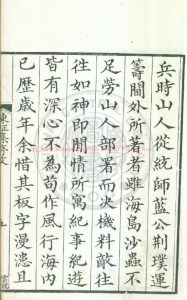 兵時山人從統師藍公荆璞運
籌閫外所著者雖海島沙蟲不
足勞山人部署而決機料敵往
往如神即閒情所寓紀事紀遊
皆有深心不為苟作風行海内
已歷歲年余惜其板字漫漶且
東征集